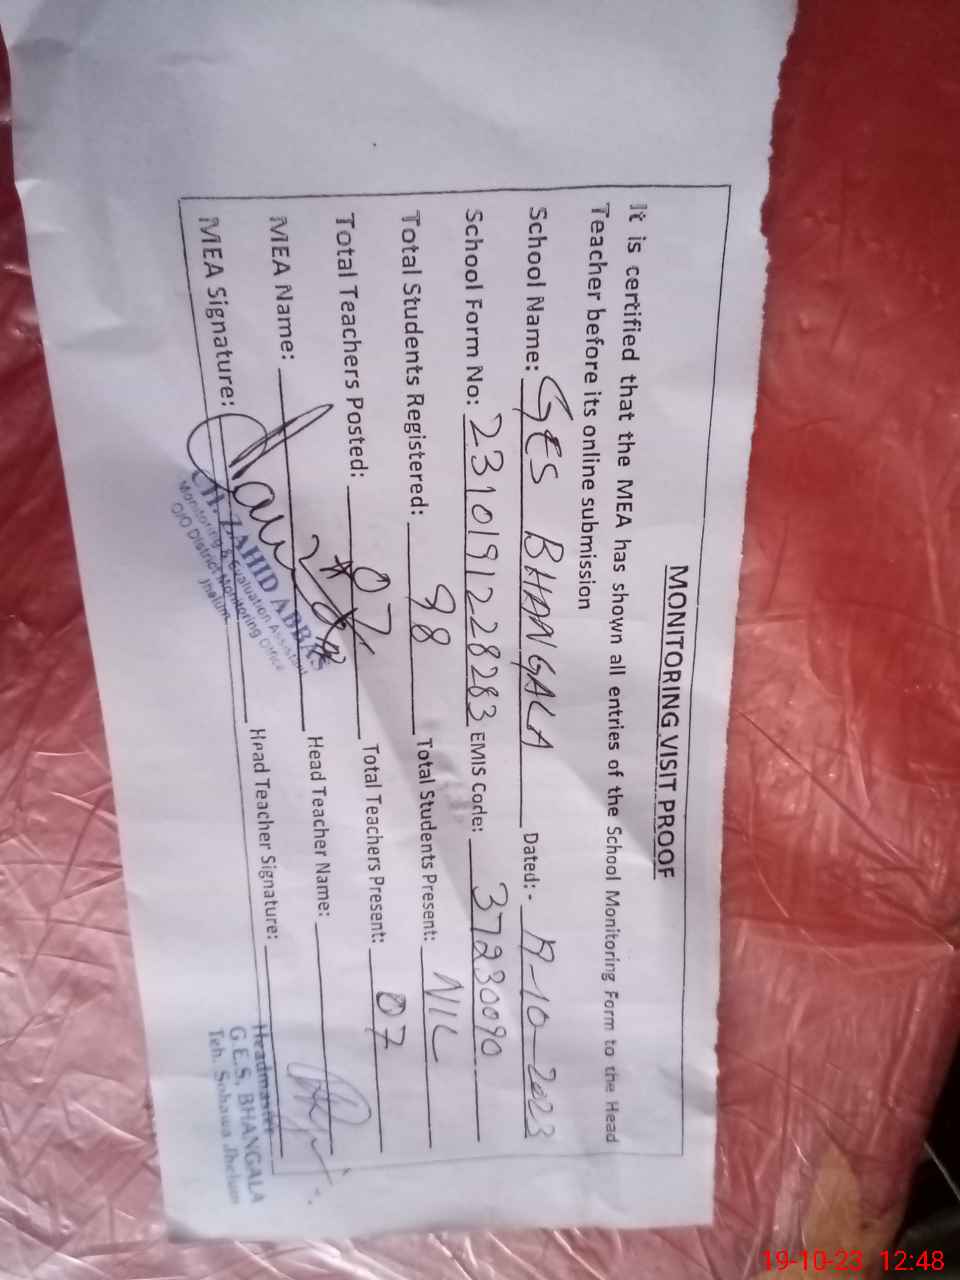 MONITORING VISIT PROOF
It is certified that the MEA has shown all entries of the School Monitoring Form to the Head
Teacher before its online submission
School Name: GES BHANGALA Dated:- 19-10-2023
School Form No: 2310191228283 EMIS Code: 37230090
Total Students Registered: 98 Total Students Present: NIL
Total Teachers Posted: 07 Total Teachers Present: 07
MEA Name: Head Teacher Name:
MEA Signature: Head Teacher Signature:
CH. ZAHID ABBAS
Monitoring & Evaluation Assistant
O/O District Monitoring Office
Jhelum
Headmaster
G.E.S, BHANGALA
Teh. Sohawa Jhelum
19-10-23 12:48